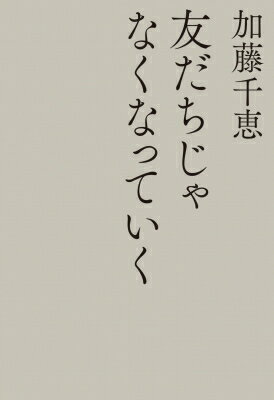 加藤千恵
友だちじゃ
なくなっていく